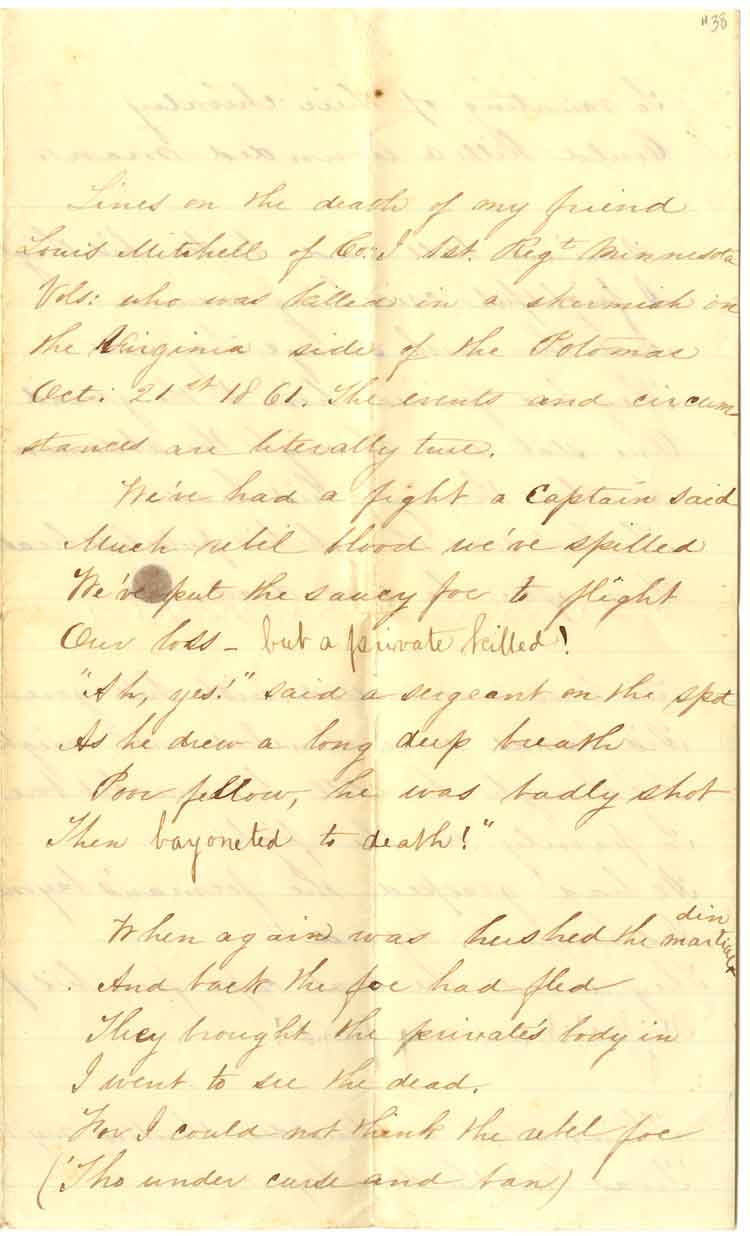 "38
Lines on the death of my friend
Louis Mitchell of Co: I 1st. Regt Minnesota
Vols: who was killed in a skirmish on
the Virginia side of the Potomac
Oct: 21st 1861. The events and circum-
stances are literally true.
We've had a fight a Captain said
Much rebil blood we've spilled
We've put the saucy foe to flight
Our loss – but a private killed!
"Ah, yes!" said a sergeant on the spot
As he drew a long deep breath
Poor fellow, he was badly shot
Then bayoneted to death!"
When again was hushed the martial din
And back the foe had fled
They brought the private's body in
I went to see the dead.
For I could not think the rebel foe
('Tho under curse and ban)